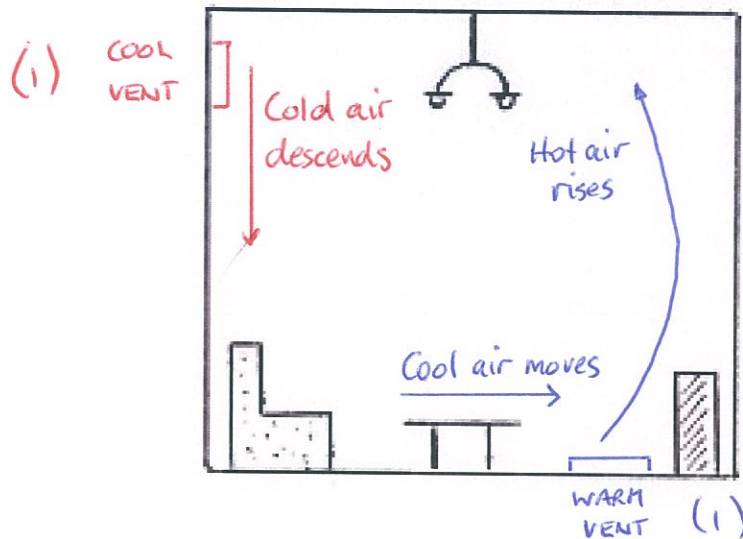 (1) COOL
VENT
Cold air
descends
Hot air
rises
Cool air moves
WARM
VENT (1)